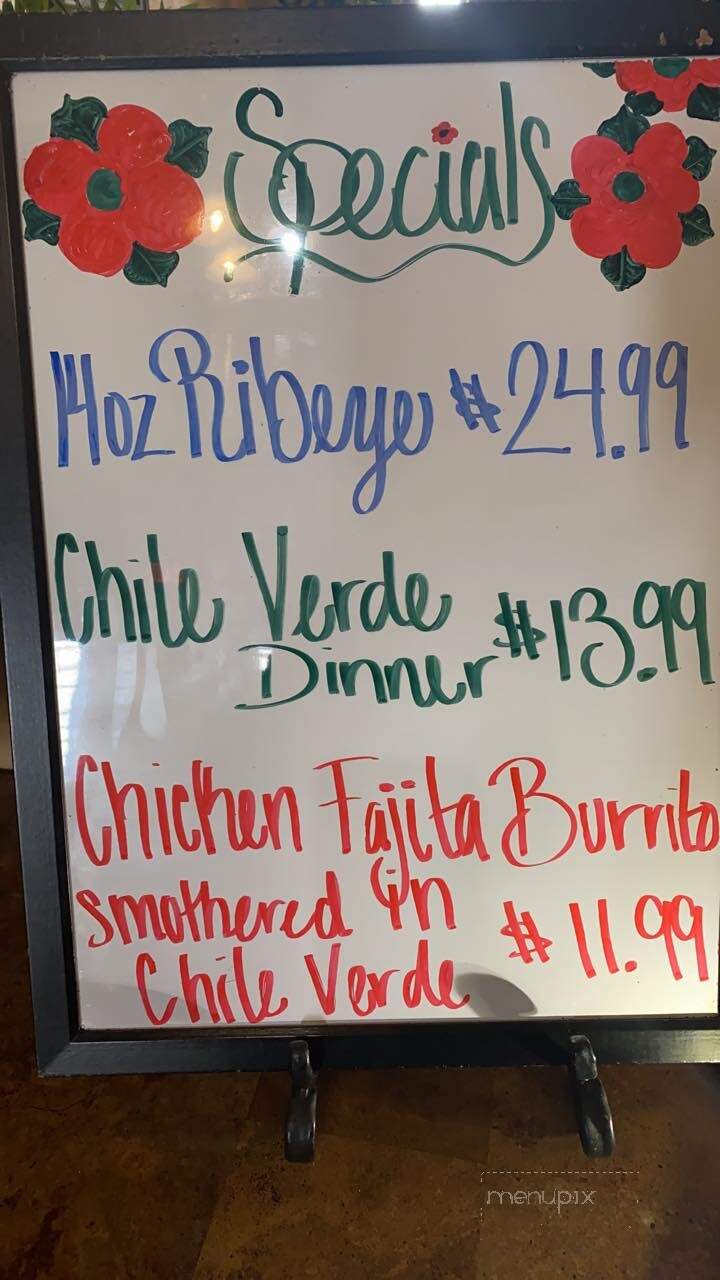 Specials
14oz Ribeye $24.99
Chile Verde
Dinner $13.99
Chicken Fajita Burrito
smothered in
Chile Verde $11.99
menupix